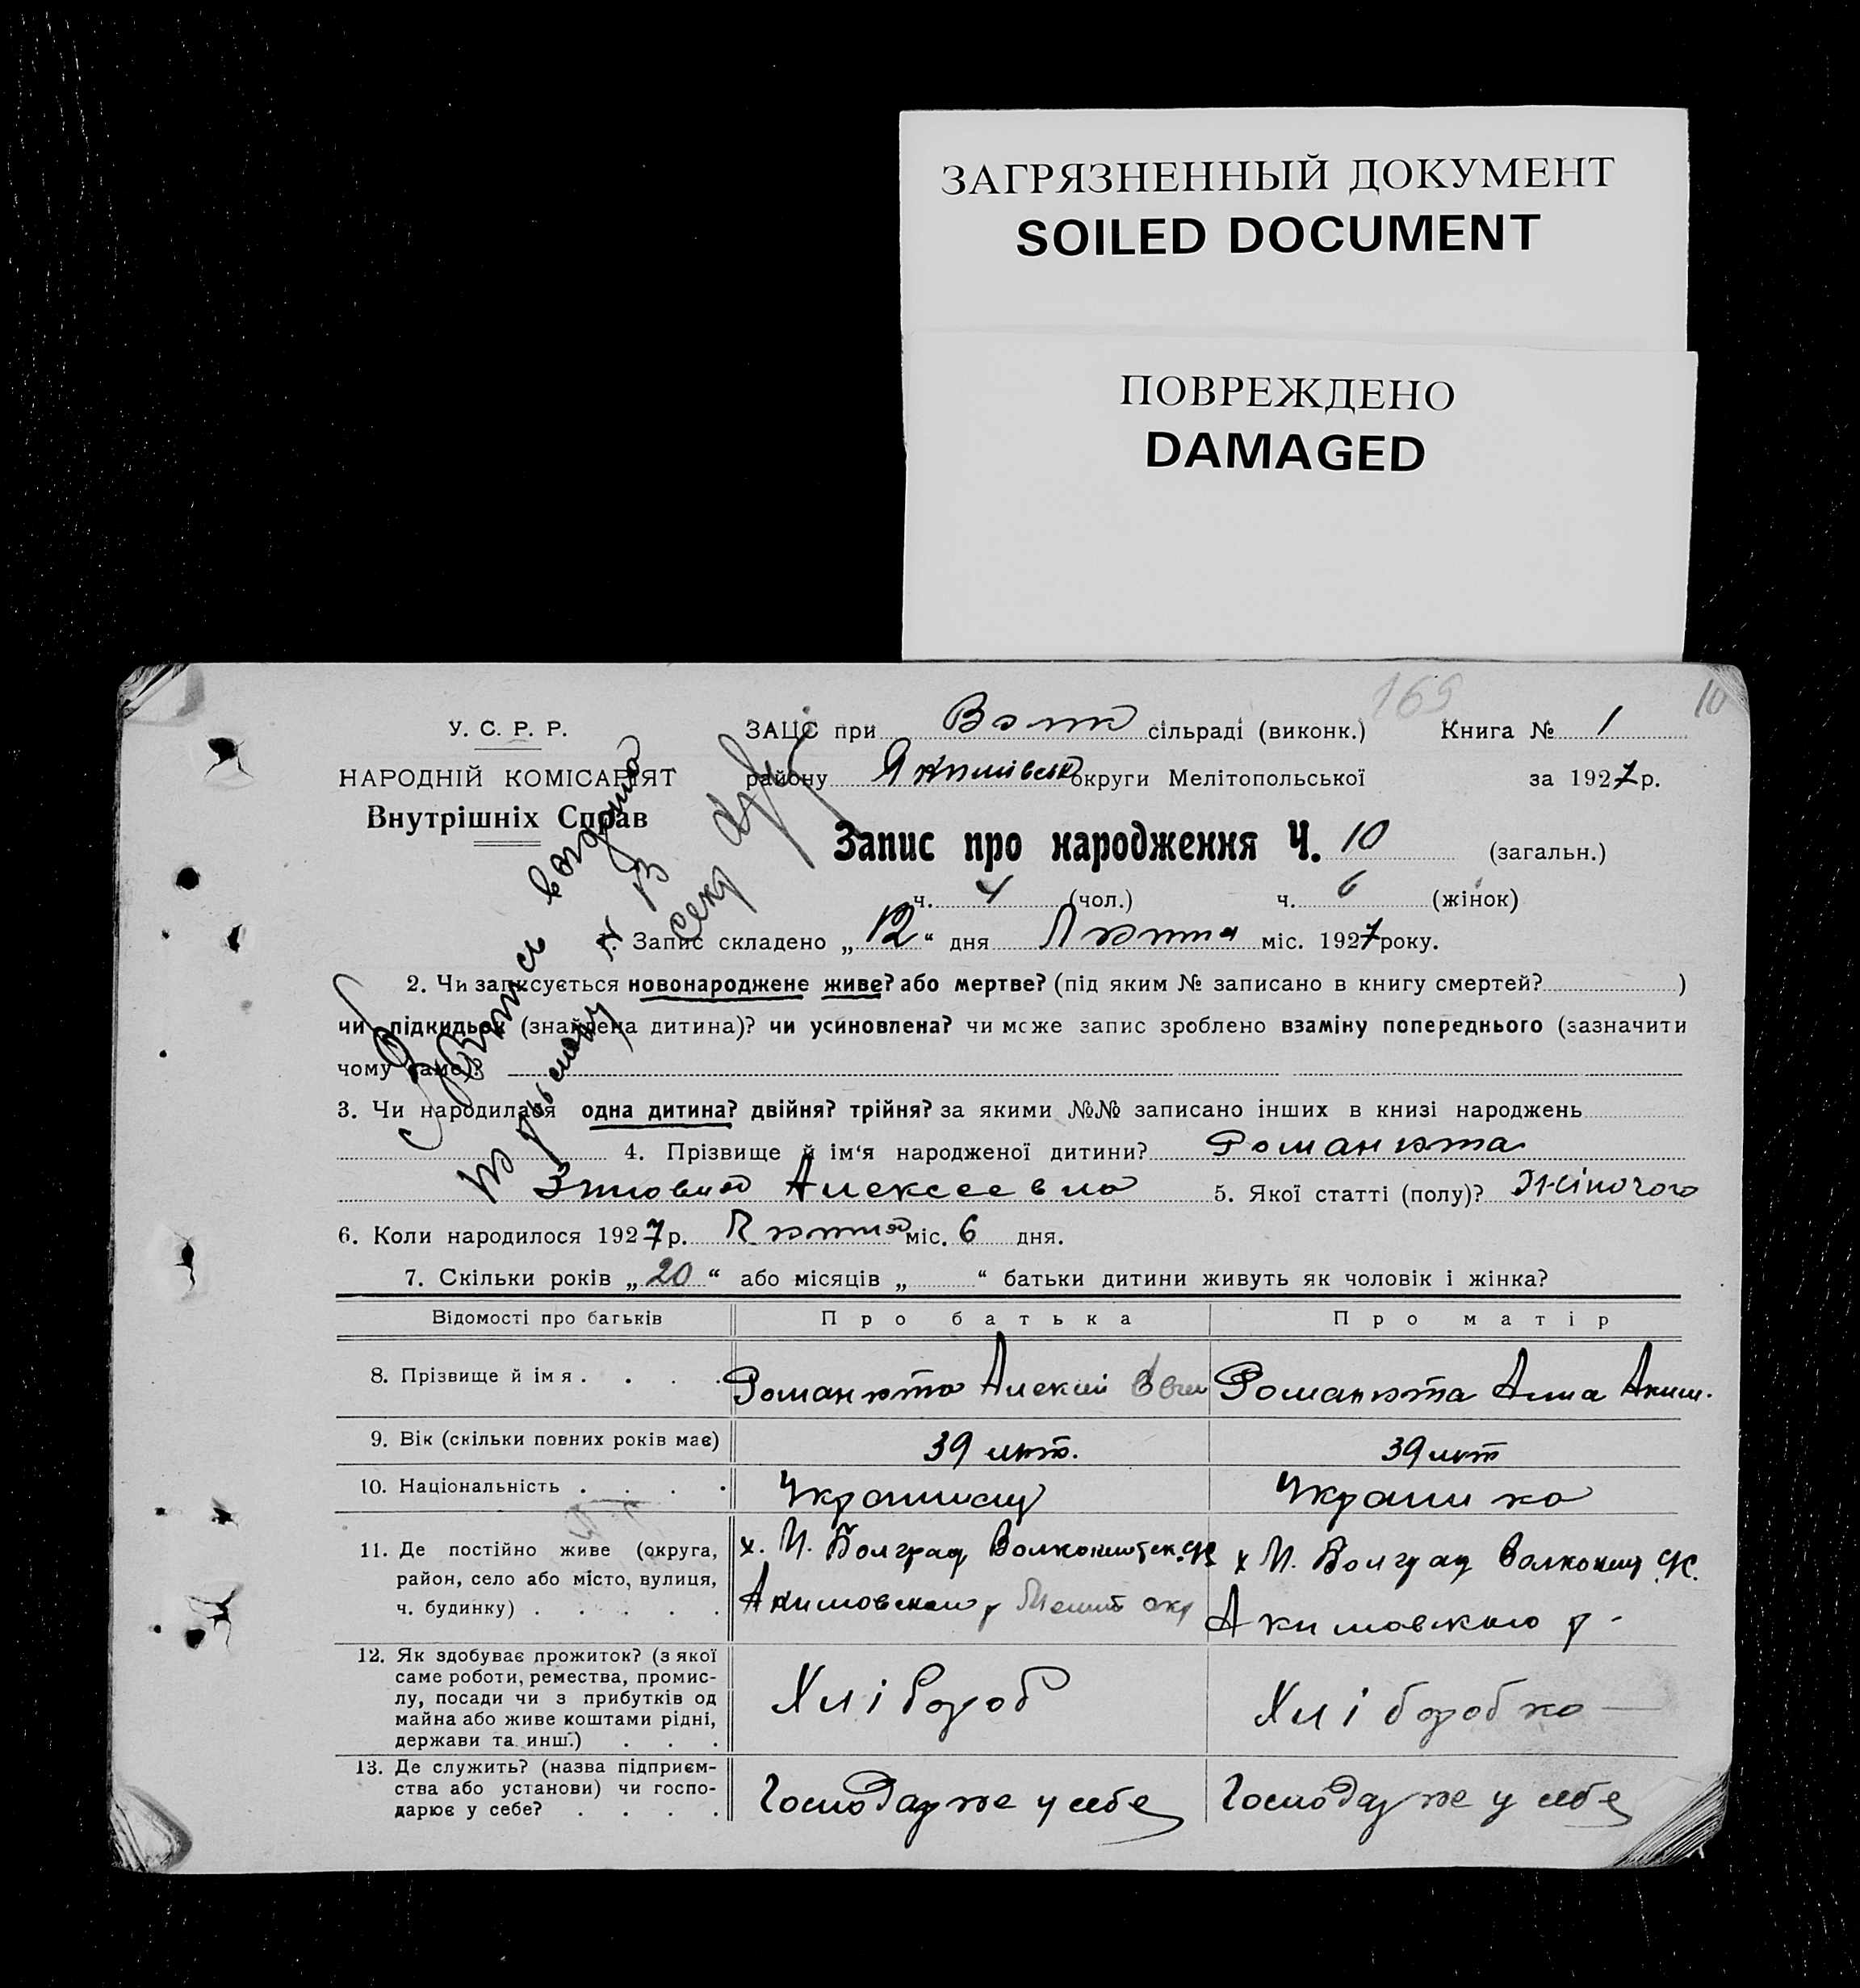 ЗАГРЯЗНЕННЫЙ ДОКУМЕНТ
SOILED DOCUMENT
ПОВРЕЖДЕНО
DAMAGED
169 10
У. С. Р. Р.
НАРОДНІЙ КОМІСАРІЯТ
Внутрішніх Справ
ЗАЦС при сільраді (виконк.) Книга № 1
району Якимівськ округи Мелітопольської за 1927 р.
Запис про народження Ч. 10 (загальн.)
ч. 4 (чол.) ч. 6 (жінок)
1. Запис складено „ 12 “ дня Лютня міс. 1927 року.
2. Чи записується новонароджене живе? або мертве? (під яким № записано в книгу смертей? )
чи підкидьок (знайдена дитина)? чи усиновлена? чи може запис зроблено взаміну попереднього (зазначити
чому саме)?
3. Чи народилася одна дитина? двійня? трійня? за якими №№ записано інших в книзі народжень
4. Прізвище й ім‘я народженої дитини? Романюта
Алексеевна 5. Якої статті (полу)? Жіночого
6. Коли народилося 1927 р. Лютня міс. 6 дня.
7. Скільки років „ 20 “ або місяців „ “ батьки дитини живуть як чоловік і жінка?
Відомості про батьків Про батька Про матір
8. Прізвище й імя . . . . Романюта Алексий Романюта Анна Аким.
9. Вік (скільки повних років має) 39 лет. 39 лет
10. Національність . . . . Украинец Украинка
11. Де постійно живе (округа,
район, село або місто, вулиця,
ч. будинку) . . . . .
х. Н. Болград
Акимовского р Мелит окр
х Н. Болград
Акимовского р -
12. Як здобуває прожиток? (з якої
саме роботи, ремества, промис-
лу, посади чи з прибутків од
майна або живе коштами рідні,
держави та инш.) . . .
Хлібороб
Хліборобка
13. Де служить? (назва підприєм-
ства або установи) чи госпо-
дарює у себе? . . . .
Господарюе у себе
Господарюе у себе